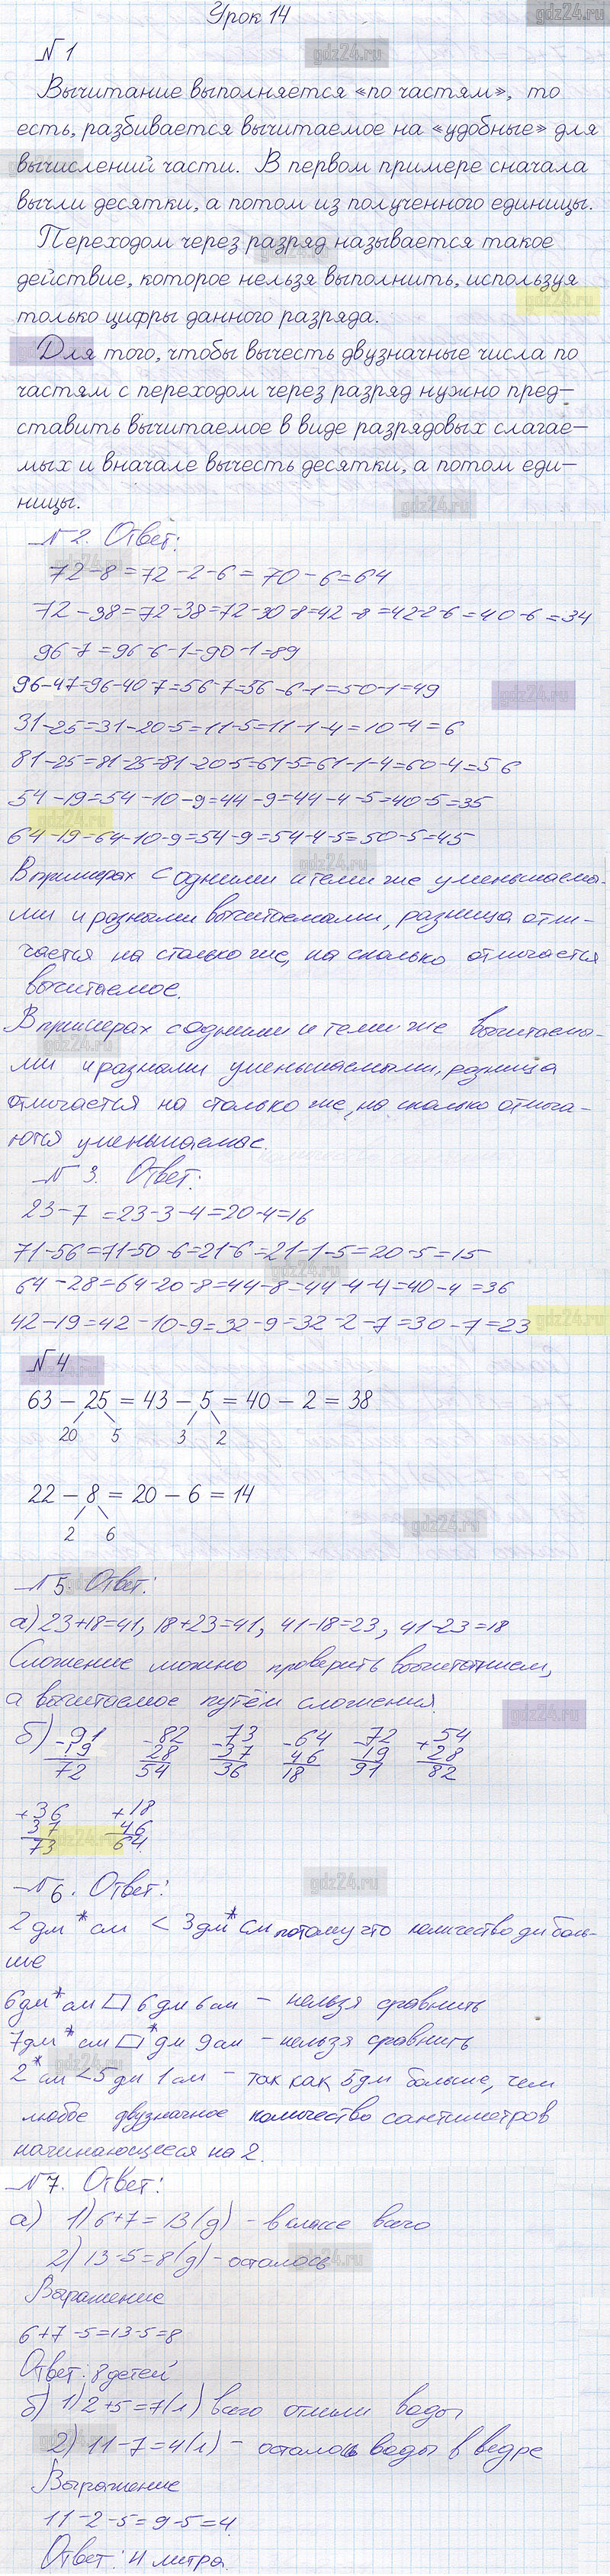 Урок 14
gdz24.ru
№ 1
gdz24.ru
Вычитание выполняется «по частям», то
есть, разбивается вычитаемое на «удобные» для
вычислений части. В первом примере сначала
вычли десятки, а потом из полученного единицы.
Переходом через разряд называется такое
действие, которое нельзя выполнить, используя
только цифры данного разряда.
Для того, чтобы вычесть двузначные числа по
частям с переходом через разряд нужно пред-
ставить вычитаемое в виде разрядовых слагае-
мых и вначале вычесть десятки, а потом еди-
ницы.
gdz24.ru
№ 2. Ответ:
72-8=72-2-6=70-6=64
72-38=72-38=72-30-8=42-8=42-2-6=40-6=34
96-7=96-6-1=90-1=89
96-47=96-40-7=56-7=56-6-1=50-1=49
gdz24.ru
31-25=31-20-5=11-5=11-1-4=10-4=6
81-25=81-25=81-20-5=61-5=61-1-4=60-4=56
54-19=54-10-9=44-9=44-4-5=40-5=35
gdz24.ru
64-19=64-10-9=54-9=54-4-5=50-5=45
gdz24.ru
В примерах с одними и теми же уменьшаемы-
ми и разными вычитаемами, разница отли-
чается на столько же, на сколько отличается
вычитаемое.
В примерах с одними и теми же вычитаемы-
ми и разнами уменьшаемыми, разница
отличается на столько же, на сколько отлича-
ются уменьшаемые.
№ 3. Ответ:
23-7=23-3-4=20-4=16
71-56=71-50-6=21-6=21-1-5=20-5=15
64-28=64-20-8=44-8=44-4-4=40-4=36
42-19=42-10-9=32-9=32-2-7=30-7=23
gdz24.ru
№ 4
63 - 25 = 43 - 5 = 40 - 2 = 38
20 5 3 2
22 - 8 = 20 - 6 = 14
2 6
gdz24.ru
№ 5. Ответ:
а) 23+18=41, 18+23=41, 41-18=23, 41-23=18
Сложение можно проверить вычитанием,
а вычитаемое путём сложения.
gdz24.ru
б) -91 -82 -73 -64 -72 +54
19 28 37 46 19 28
72 54 36 18 91 82
+36 +18
37 46
73 64
gdz24.ru
№ 6. Ответ:
2 дм * см < 3 дм * см потому что количество дм боль-
ше
6 дм * см □ 6 дм 6 см - нельзя сравнить
7 дм * см □ * дм 9 см - нельзя сравнить
2 * см < 5 дм 1 см - так как 5 дм больше, чем
любое двузначное количество сантиметров
начинающееся на 2.
№ 7. Ответ:
а) 1) 6+7=13(д) - в классе всего
2) 13-5=8(д) - осталось
Выражение
6+7-5=13-5=8
Ответ: 8 детей
б) 1) 2+5=7(л) всего отлили воды
2) 11-7=4(л) - осталось воды в ведре
Выражение
11-2-5=9-5=4
Ответ: 4 литра.